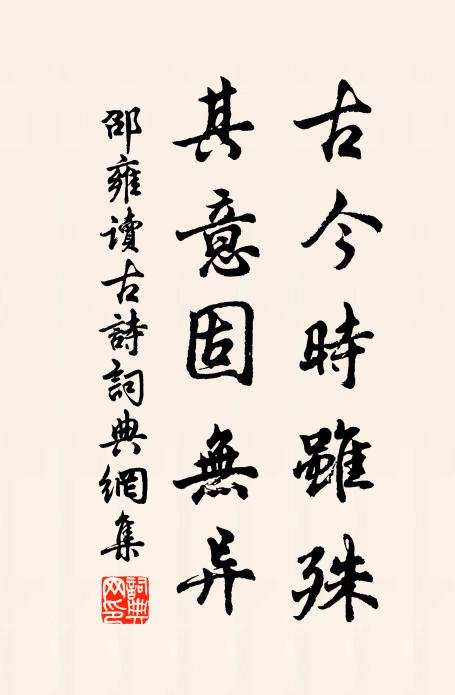 古今時雖殊
其意固無异
邵雍讀古詩詞典網集
詞典網印